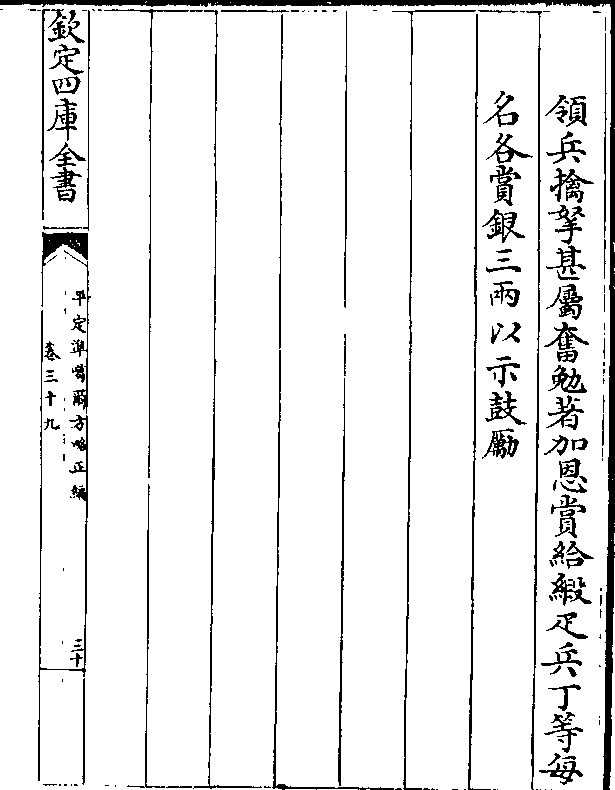 領兵擒拏甚屬奮勉著加恩賞給緞疋兵丁等每
名各賞銀三兩以示鼓勵
欽定四庫全書
平定準噶爾方略正編
卷三十九
三十